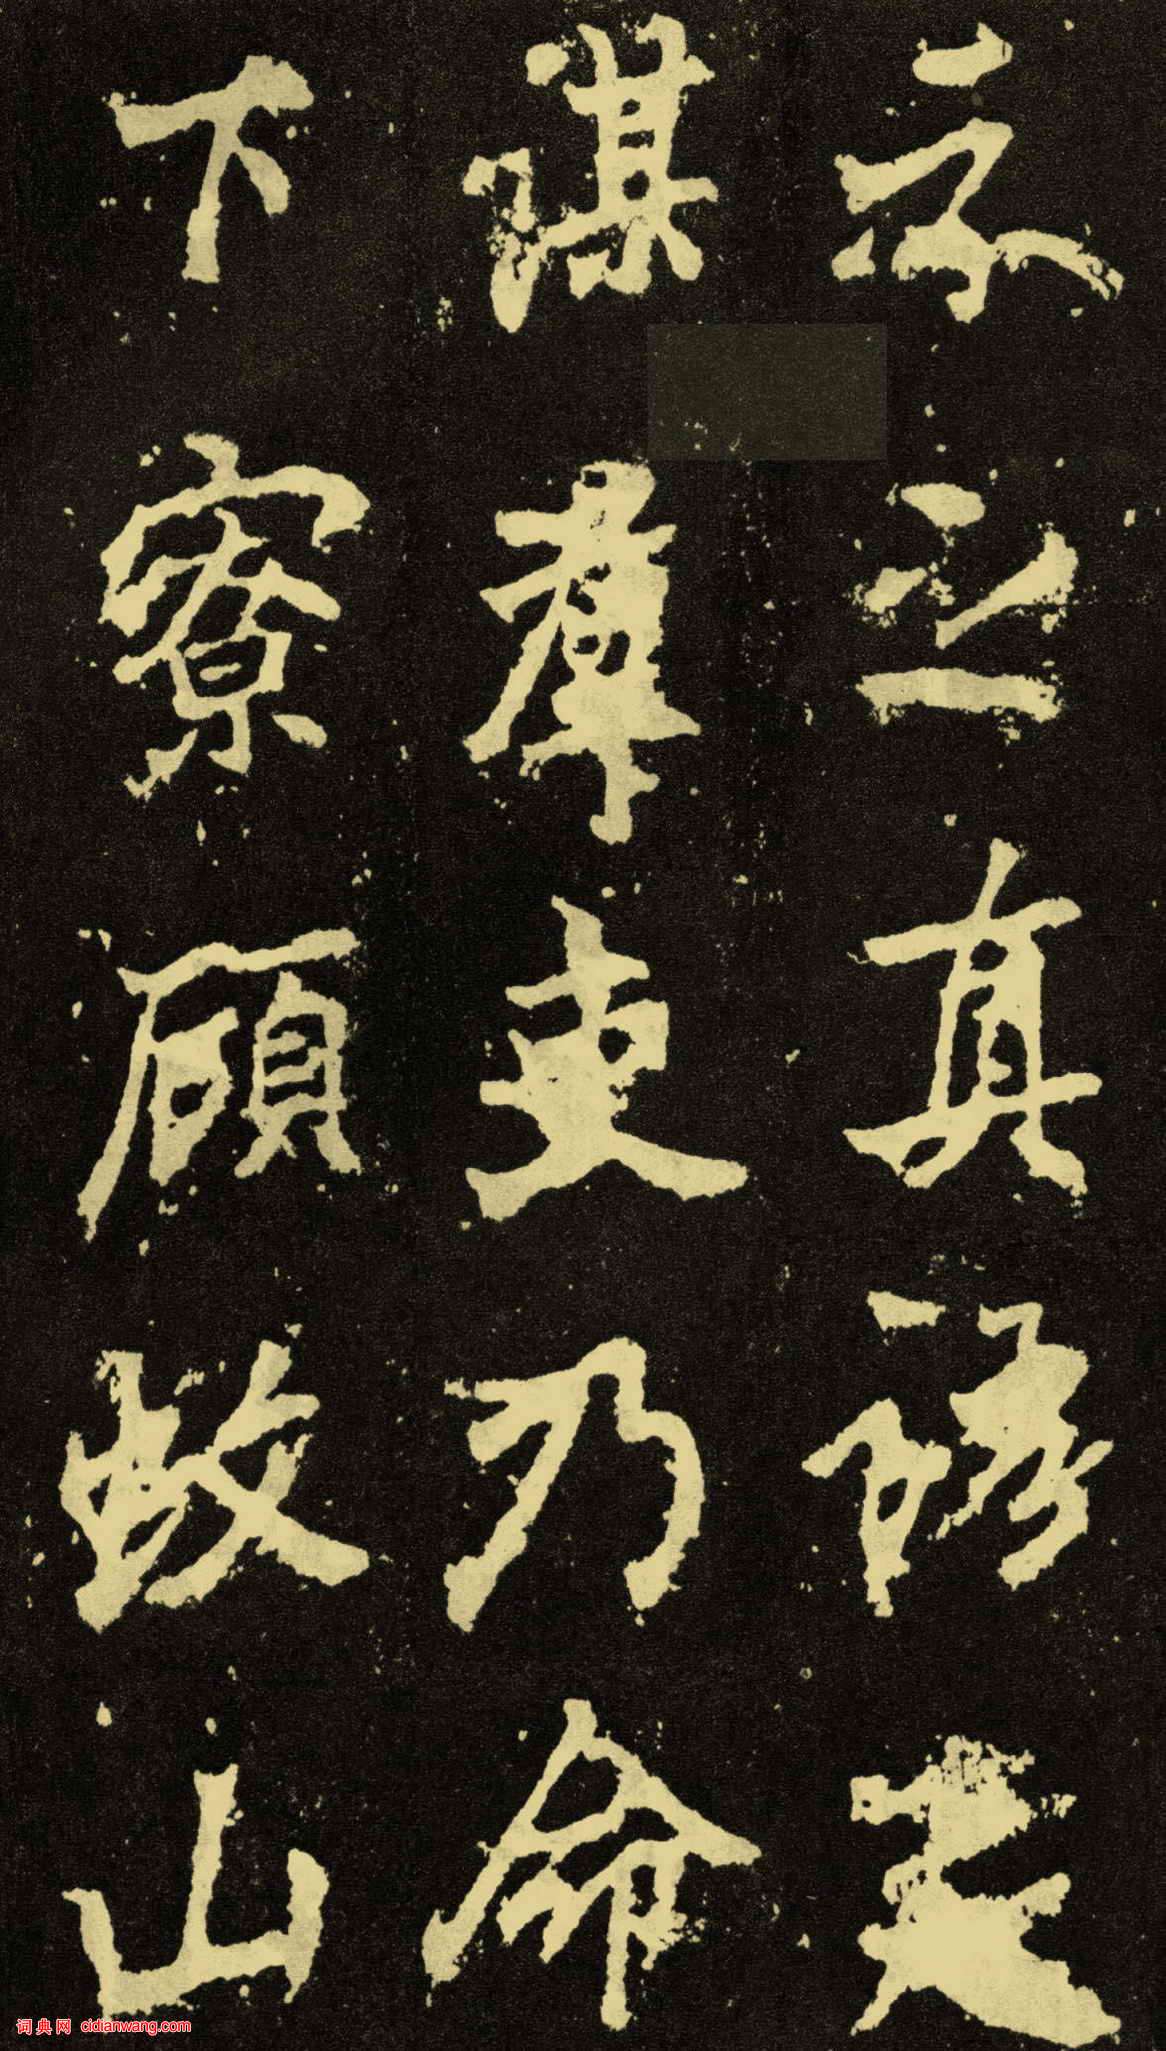 示之真語哭
謀群吏乃命
下寮顧故山
词典网 cidianwang.com